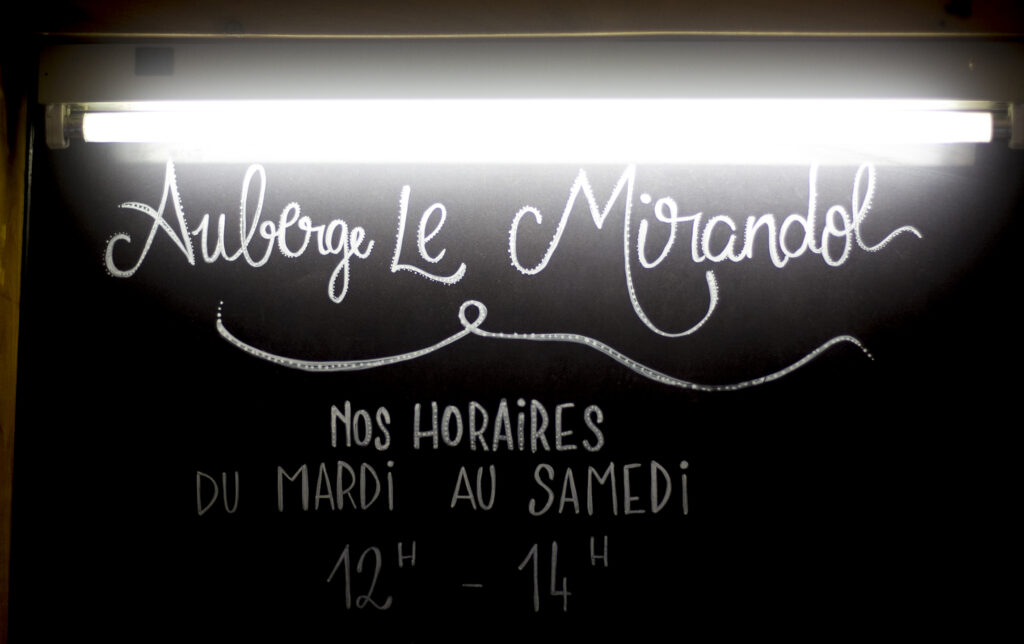 Auberge Le Mirandol
NOS HORAiRES
DU MARDi AU SAMEDi
12H - 14H